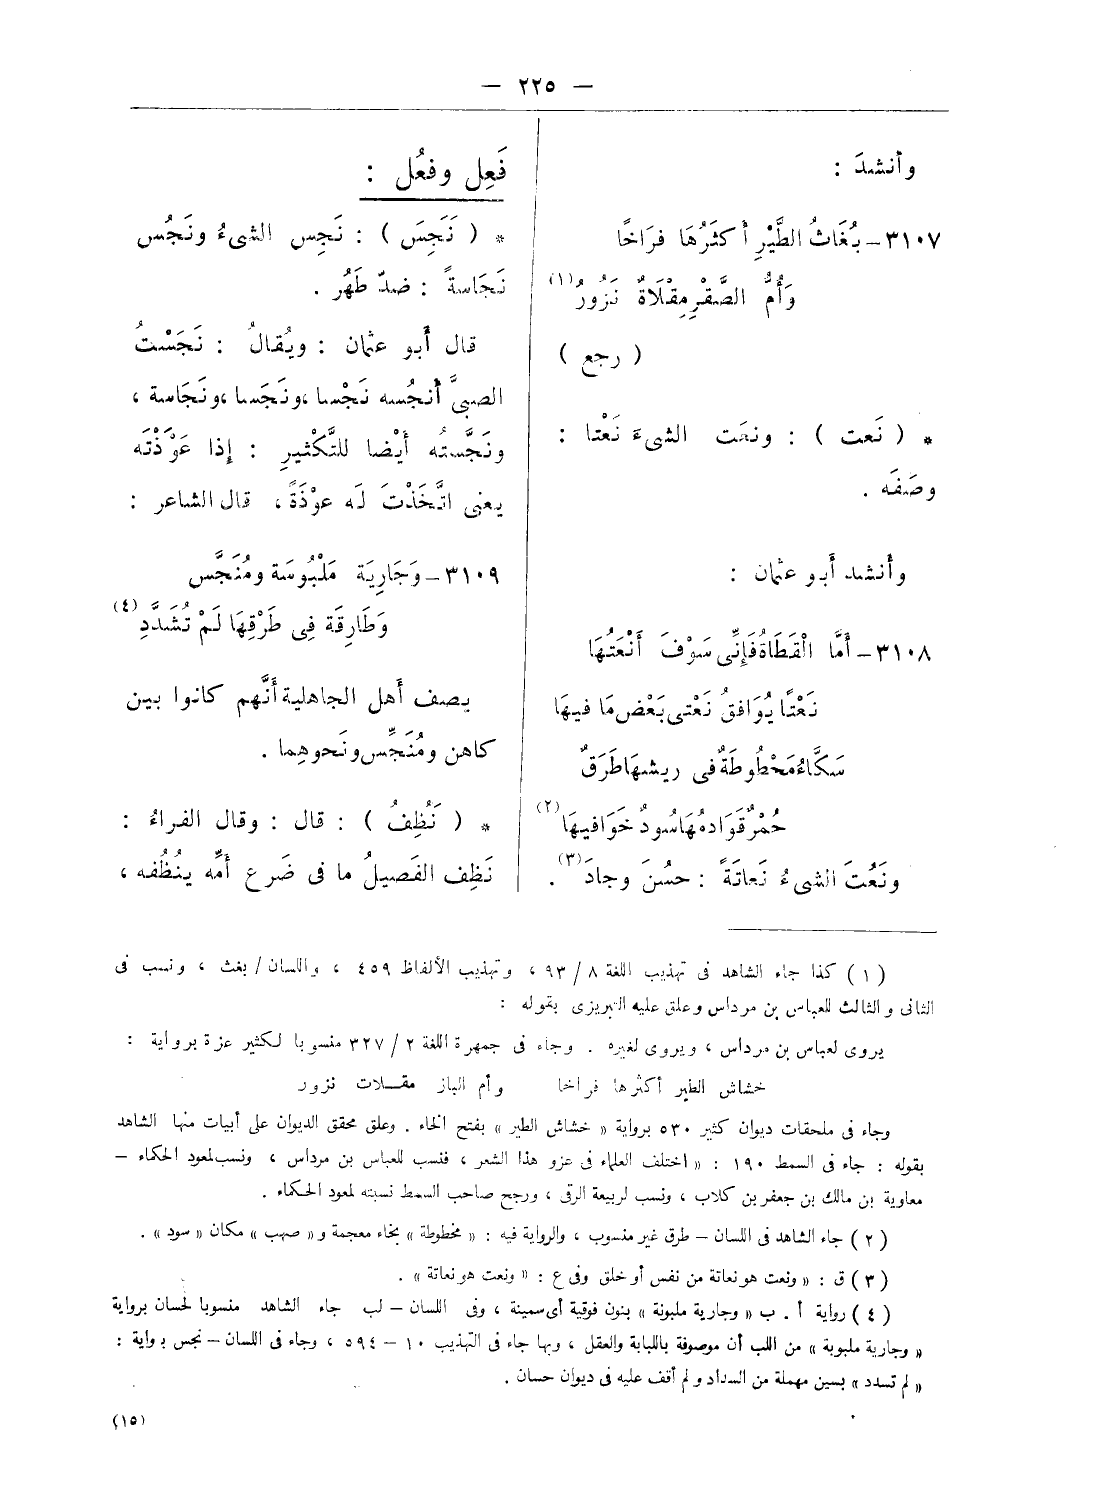 — ٢٢٥ —
وأنشدَ :
٣١٠٧ – بُغَاثُ الطَّيْرِ أكثَرُهَا فرَاخًا
وَأُمُّ الصَّقْرِ مِقْلَاةٌ نَزُورُ (١)
( رجع )
* ( نَعت ) : ونعَت الشىءَ نَعْتا :
وصَفَه .
وأنشد أبو عثمان :
٣١٠٨ – أَمَّا الْقَطَاةُ فَإِنِّى سَوْفَ أَنْعَتُهَا
نَعْتًا يُوَافقُ نَعْتى بَعْضَ مَا فيهَا
سَكَّاءُ مَخْطُوطَةٌ فى ريشهَا طَرَقٌ
حُمْرٌ قَوَادمُهَا سُودٌ خَوَافيهَا (٢)
ونَعُتَ الشىءُ نَعاتَةً : حسُنَ وجادَ (٣) .
فَعِل وفعُل :
* ( نَجَسَ ) : نَجِس الشىءُ ونَجُس
نَجَاسةً : ضدّ طَهُر .
قال أَبو عثمان : ويُقالُ : نَجَسْتُ
الصبىَّ أَنجُسه نَجْسا ، ونَجَسا ، ونَجَاسة ،
ونَجَّستُه أَيْضا للتَّكْثيرِ : إذا عَوَّذْتَه
يعنى اتَّخَذْتَ لَه عوْذَةً ، قال الشاعر :
٣١٠٩ – وَجَاريَة مَلْبُوسَة ومُنَجَّس
وَطَارقَة فِى طَرْقِهَا لَمْ تُشَدَّدِ (٤)
يصف أَهل الجاهلية أَنَّهم كانوا بين
كاهن ومُنَجِّس ونَحوهِما .
* ( نَظُفُ ) : قال : وقال الفراءُ :
نَظِف الفَصيلُ ما فى ضَرع أُمِّه ينْظُفه ،
( ١ ) كذا جاء الشاهد فى تهذيب اللغة ٨ / ٩٣ ، وتهذيب الألفاظ ٤٥٩ ، واللسان / بغث ، ونسب فى
الثانى والثالث للعباس بن مرداس وعلق عليه التبريزى بقوله :
يروى لعباس بن مرداس ، ويروى لغيره . وجاء فى جمهرة اللغة ٢ / ٣٢٧ منسوبا لكثير عزة برواية :
خشاش الطير أكثرها فراخا وأم الباز مقلات نزور
وجاء فى ملحقات ديوان كثير ٥٣٠ برواية « خشاش الطير » بفتح الخاء . وعلق محقق الديوان على أبيات منها الشاهد
بقوله : جاء فى السمط ١٩٠ : « اختلف العلماء فى عزو هذا الشعر ، فنسب للعباس بن مرداس ، ونسب لمعود الحكماء –
معاوية بن مالك بن جعفر بن كلاب ، ونسب لربيعة الرقى ، ورجح صاحب السمط نسبته لمعود الحكماء .
( ٢ ) جاء الشاهد فى اللسان – طرق غير منسوب ، والرواية فيه : « مخطوطة » بخاء معجمة و « صهب » مكان « سود » .
( ٣ ) ق : « ونعت هو نعاتة من نفس أو خلق وفى ع : « ونعت هو نعاتة » .
( ٤ ) رواية أ . ب « وجارية ملبونة » بنون فوقية أى سمينة ، وفى اللسان – لب جاء الشاهد منسوبا لحسان برواية
« وجارية ملبوبة » من اللب أن موصوفة باللبابة والعقل ، وبها جاء فى التهذيب ١٠ – ٥٩٤ ، وجاء فى اللسان – نجس برواية :
« لم تسدد » بسين مهملة من السداد ولم أقف عليه فى ديوان حسان .
(١٥)